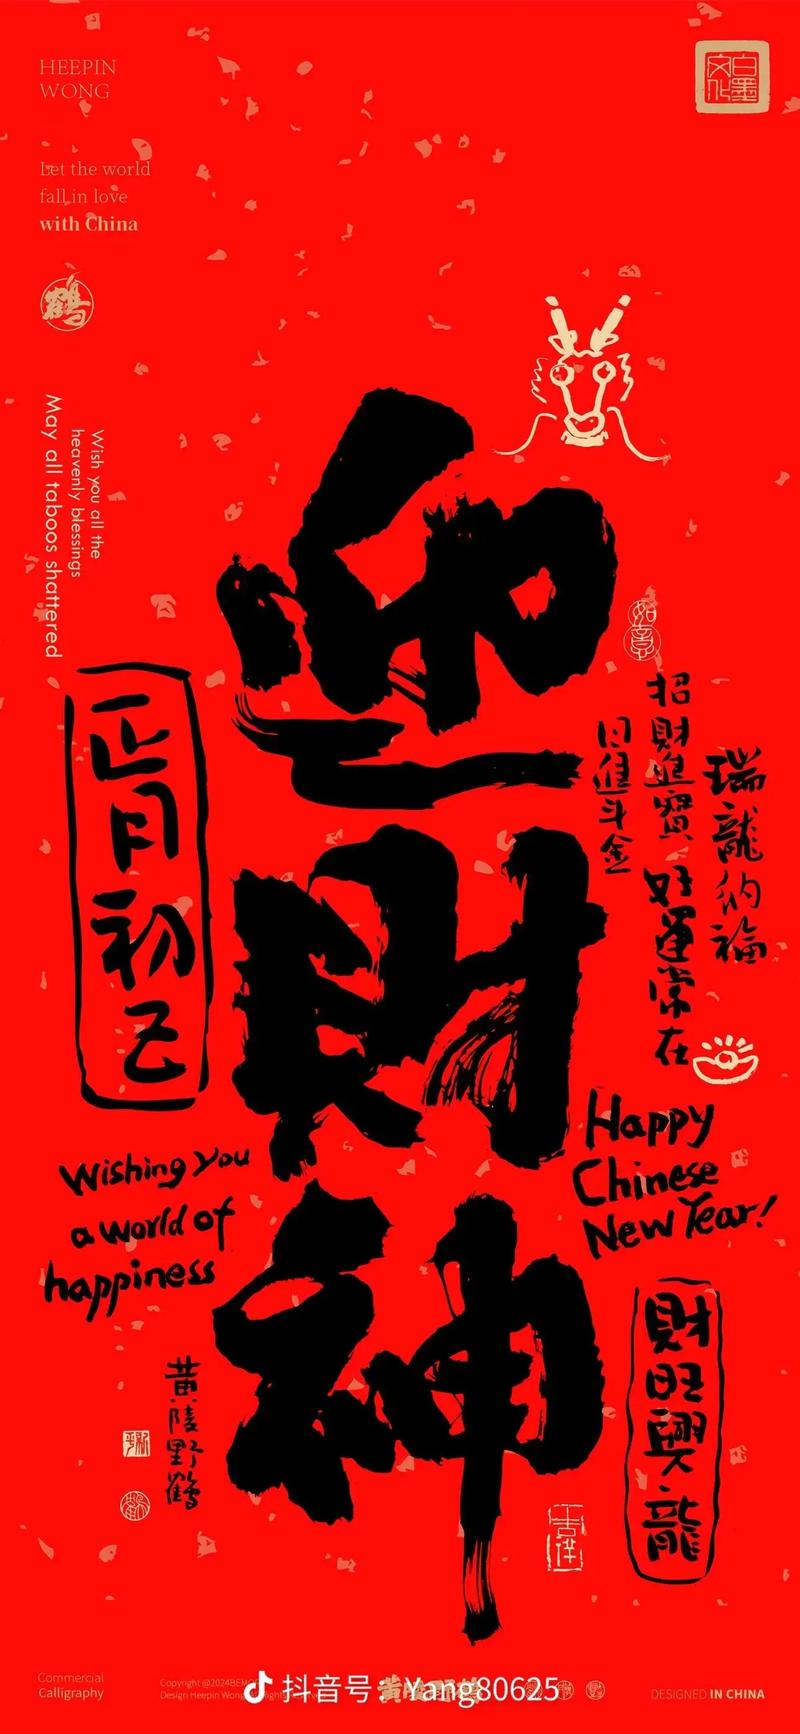 HEEPIN
WONG
Let the world
fall in love
with China
鶴
白墨
文化
Wish you all the
heavenly blessings
May all taboos shattered
迎財神
如意
瑞龍納福
招財進寶 好運常在
日進斗金
正月初五
Happy
Chinese
New Year!
Wishing you
a world of
happiness
財旺興龍
黄陵野鶴
Commercial
Calligraphy
Copyright @2024BEMO
Design Heepin Wong
抖音号：Yang80625
DESIGNED IN CHINA